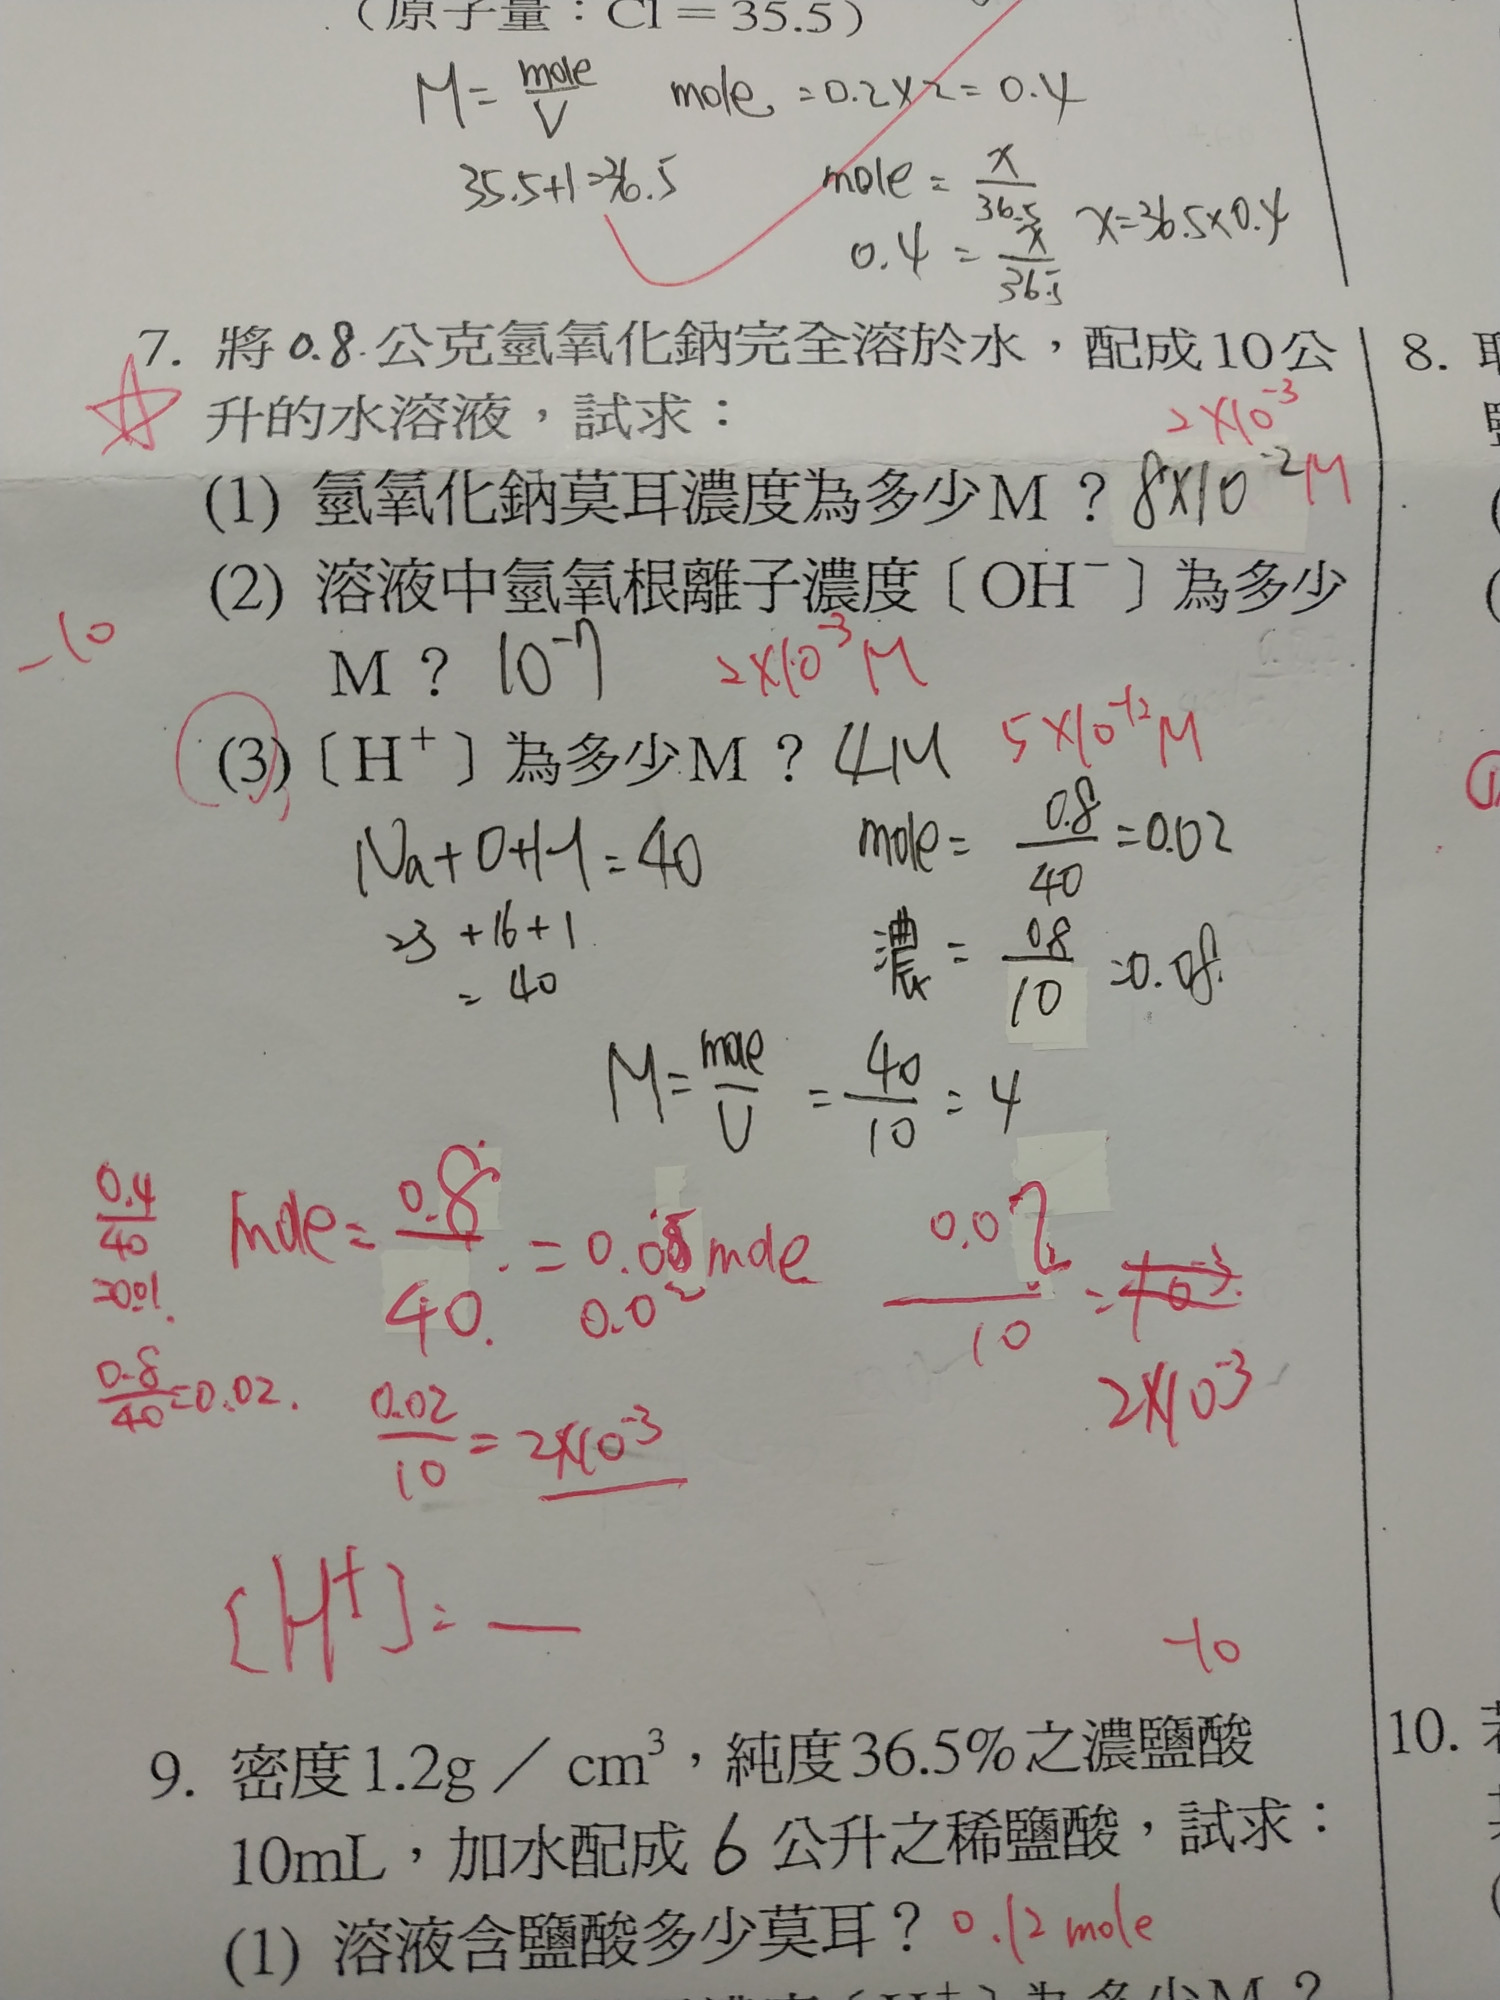 （原子量：Cl＝35.5）
M = mole/V　mole = 0.2×2 = 0.4
35.5+1=36.5　mole = x/36.5
0.4 = x/36.5　x=36.5×0.4
7. 將0.8公克氫氧化鈉完全溶於水，配成10公
升的水溶液，試求：
2×10⁻³
(1) 氫氧化鈉莫耳濃度為多少M？8×10⁻² M
(2) 溶液中氫氧根離子濃度〔OH⁻〕為多少
-10
M？10⁻⁷　2×10⁻³ M
(3)〔H⁺〕為多少M？4M　5×10⁻¹² M
Na+O+H=40　mole = 0.8/40 = 0.02
23+16+1
= 40
濃 = 0.8/10 = 0.08
M = mole/V = 40/10 = 4
0.4/40 = 0.01
mole = 0.8/40 = 0.0 mole　0.02/10 =
0.02
2×10⁻³
0.8/40 = 0.02.
0.02/10 = 2×10⁻³
[H⁺] = —
-10
9. 密度1.2g／cm³，純度36.5%之濃鹽酸
10mL，加水配成 6 公升之稀鹽酸，試求：
(1) 溶液含鹽酸多少莫耳？0.12 mole
〔H⁺〕為多少M？
8.
10.